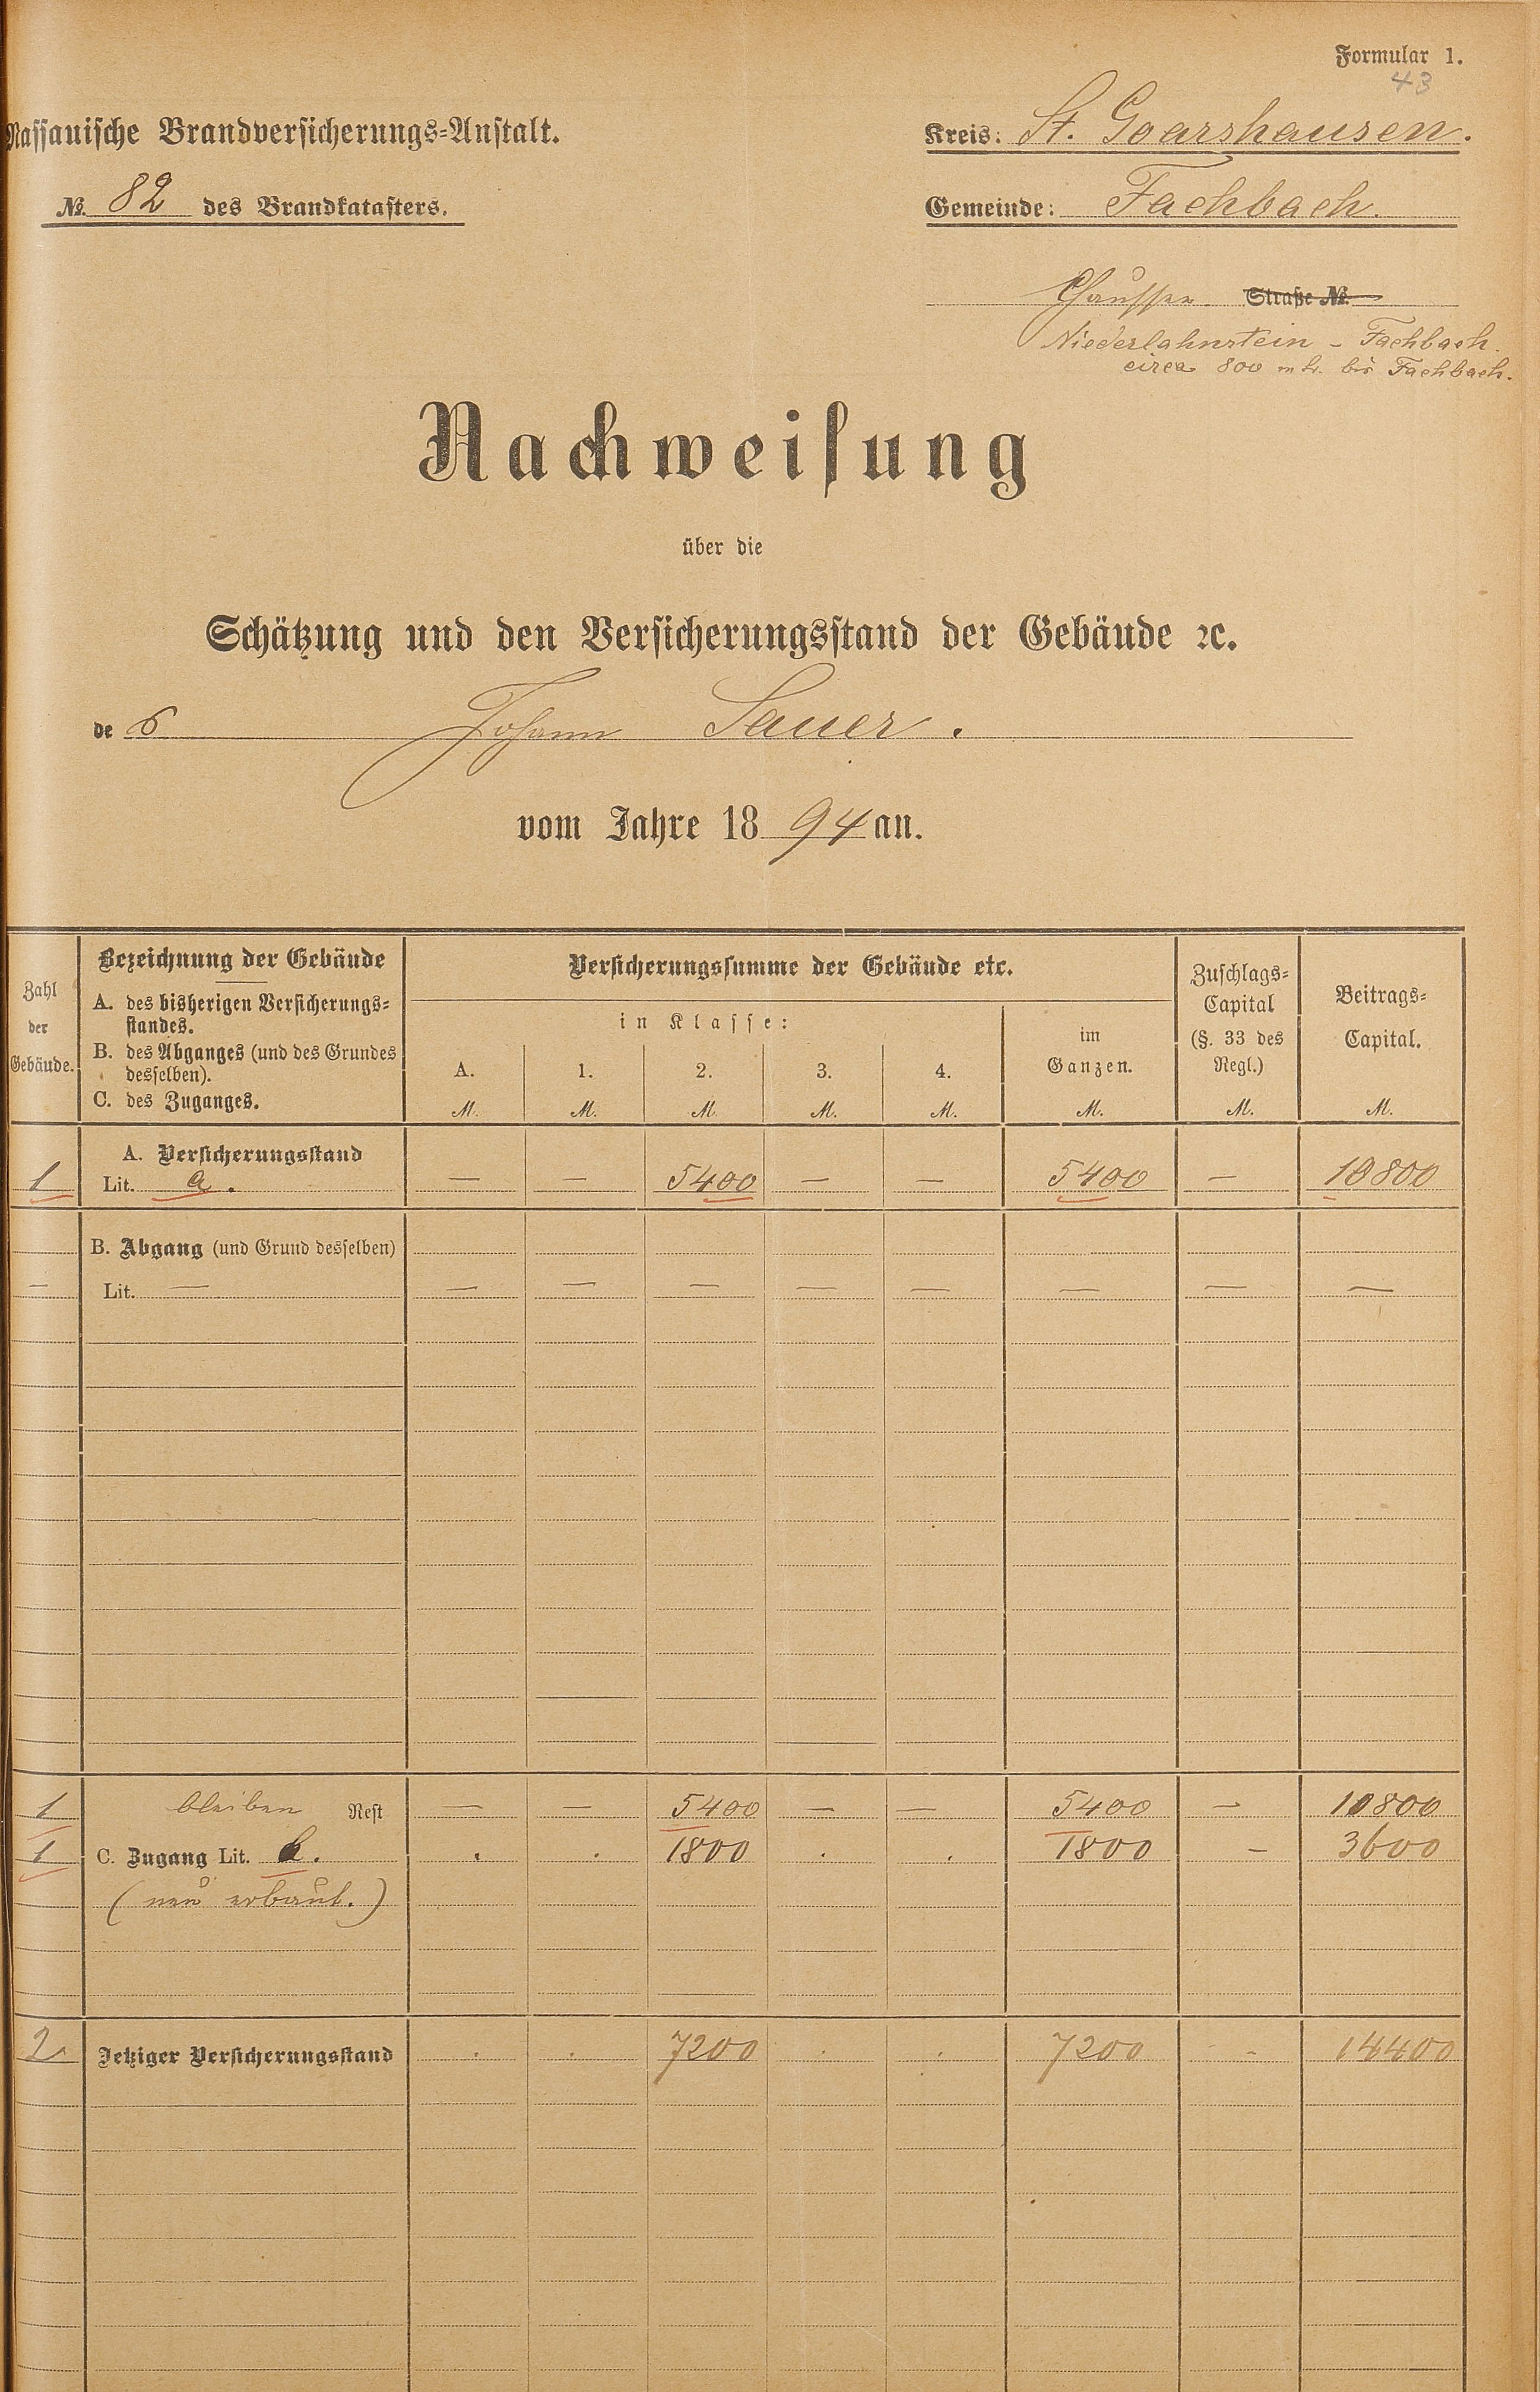 Formular 1.
43
Nassauische Brandversicherungs=Anstalt.
Kreis: St. Goarshausen.
№. 82 des Brandkatasters.
Gemeinde: Fachbach.
Chaussee Straße №.
Niederlahnstein - Fachbach.
circa 800 mtr. bis Fachbach.
Nachweisung
über die
Schätzung und den Versicherungsstand der Gebäude ꝛc.
des Johann Sauer.
vom Jahre 1894 an.
Zahl der Gebäude.
Bezeichnung der Gebäude
A. des bisherigen Versicherungs=
standes.
B. des Abganges (und des Grundes
desselben).
C. des Zuganges.
Versicherungssumme der Gebäude etc.
in Klasse:
A. 1. 2. 3. 4.
M. M. M. M. M.
im
Ganzen.
M.
Zuschlags=
Capital
(§. 33 des
Regl.)
M.
Beitrags=
Capital.
M.
A. Versicherungsstand
1 Lit. a. — — 5400 — — 5400 — 10800
B. Abgang (und Grund desselben)
— Lit. — — — — — — — — —
1 bleiben Rest — — 5400 — — 5400 — 10800
1 C. Zugang Lit. b. . . 1800 . . 1800 — 3600
(neu erbaut.)
2 Jetziger Versicherungsstand . . 7200 . . 7200 - 14400